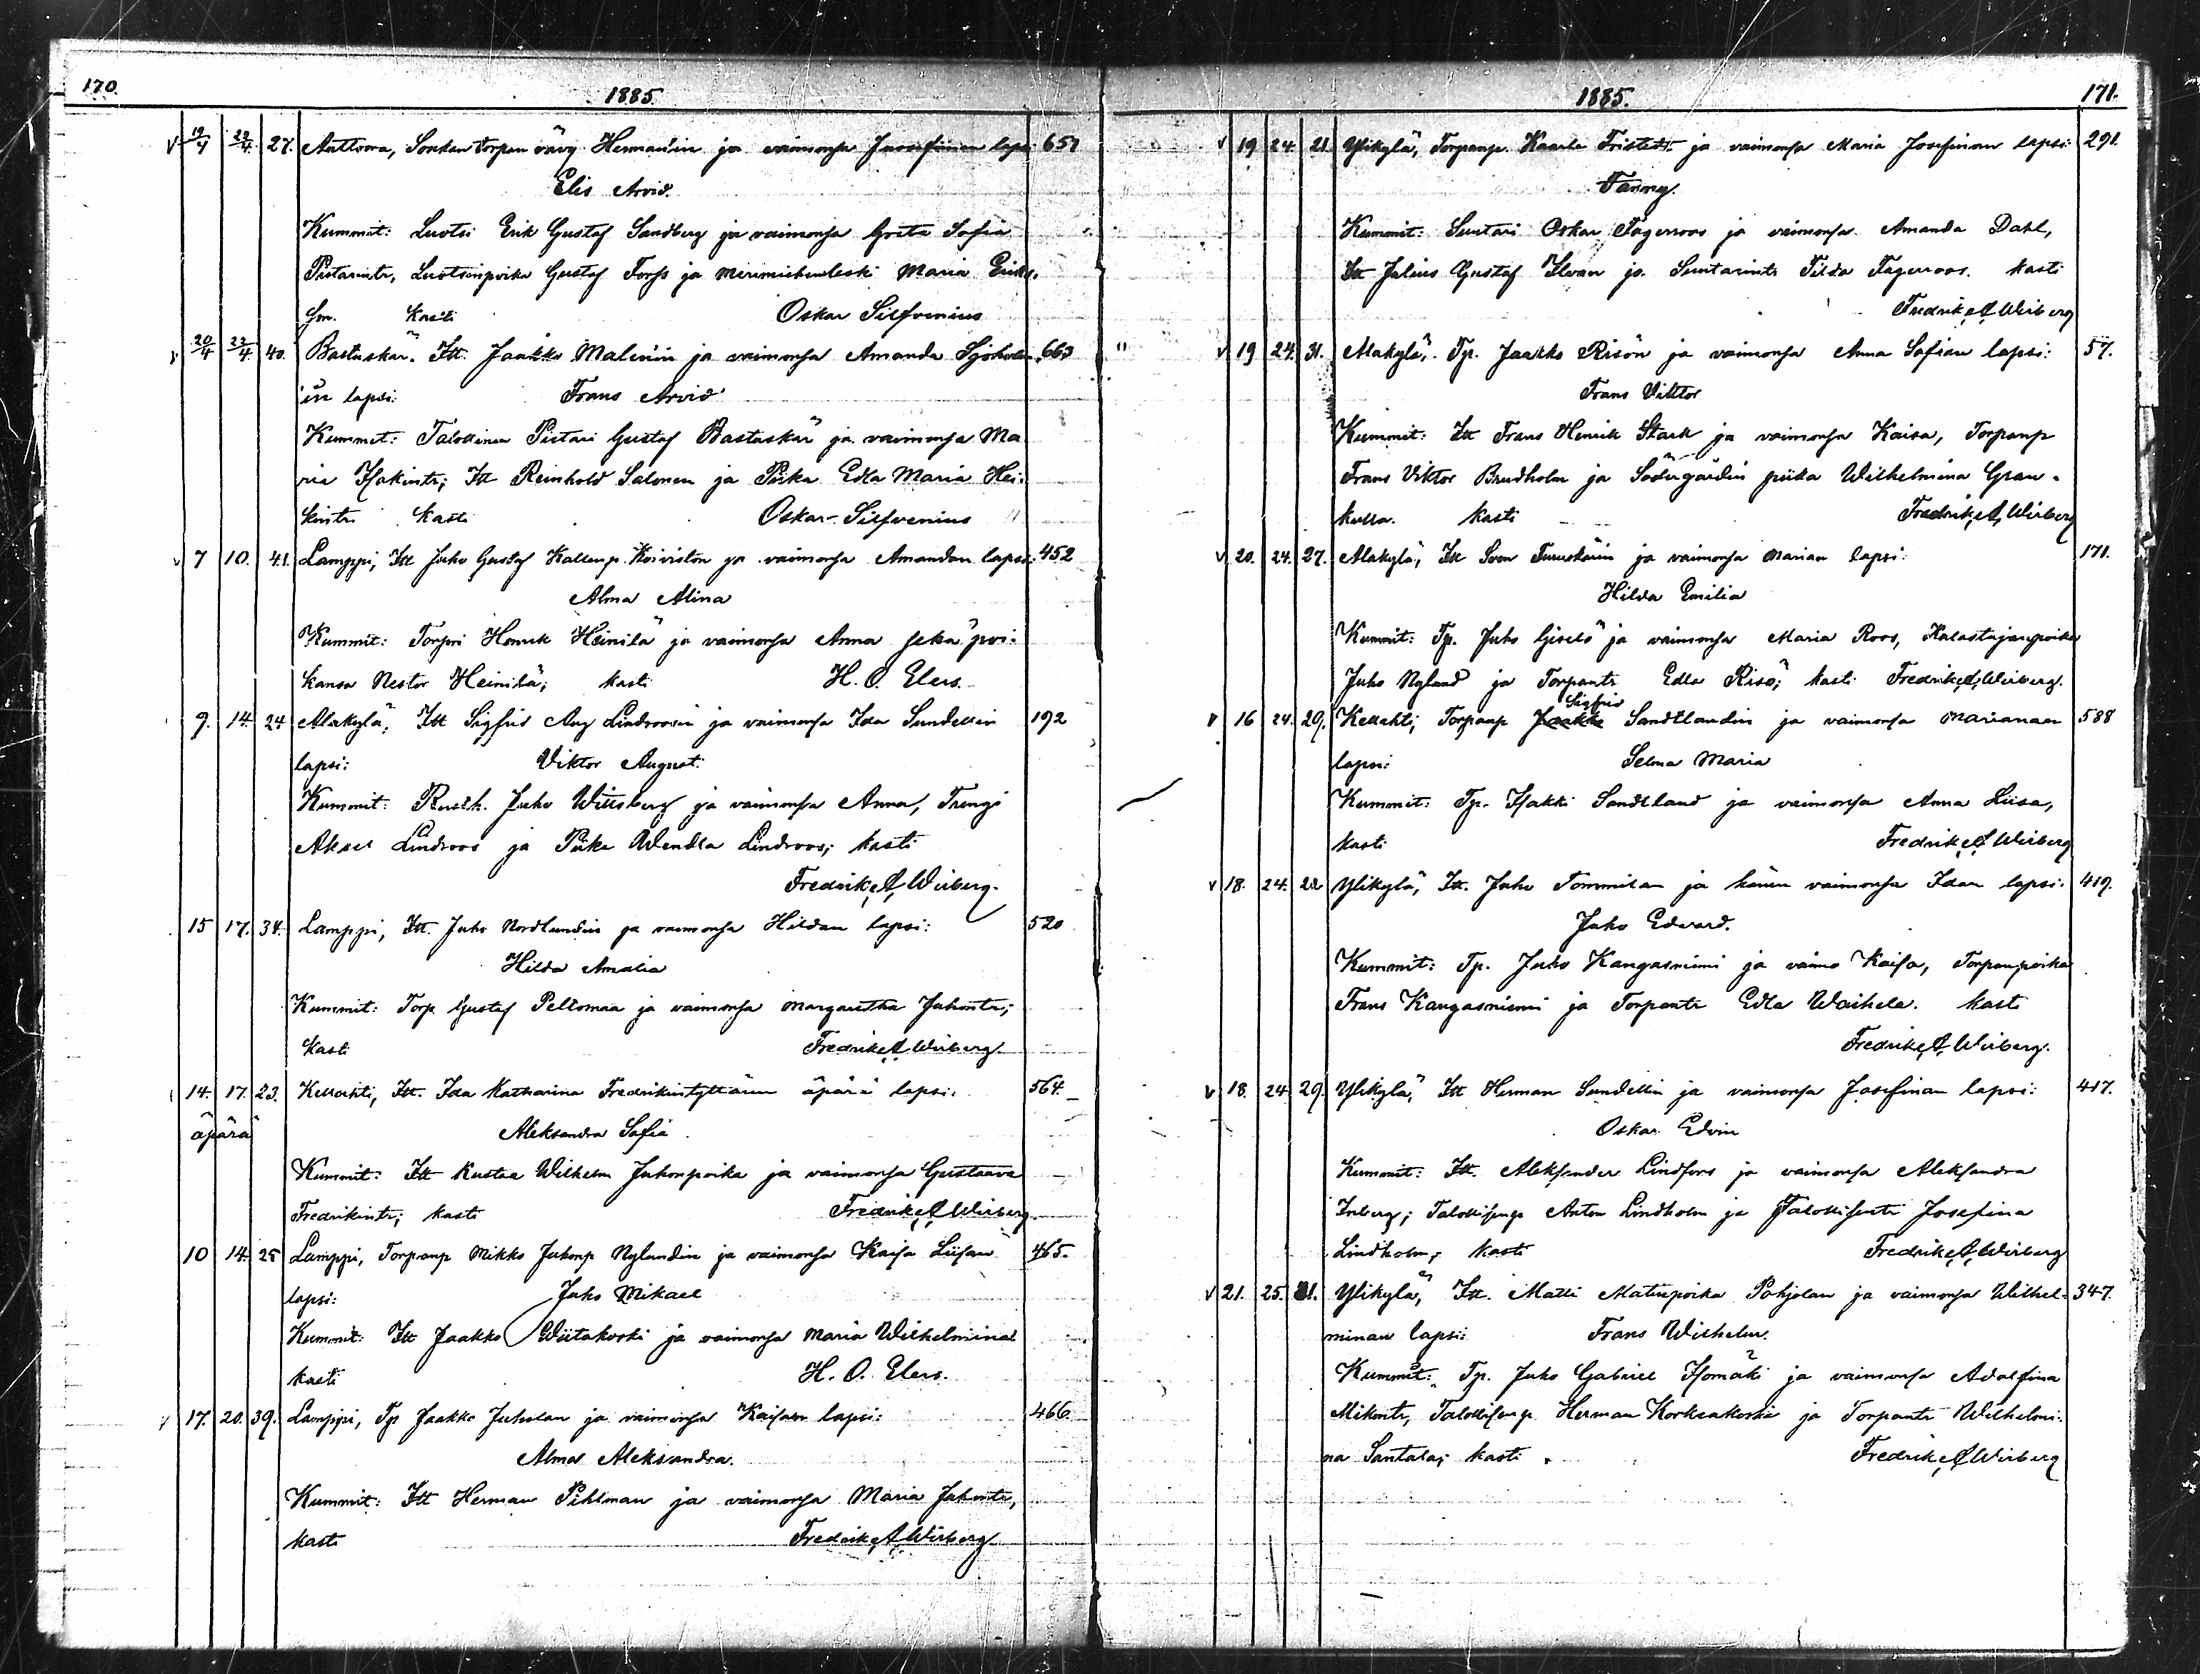 170.
1885.
19/4 22/4 27. Anttoora, Soukan torpan vävy Hermanin ja vaimonsa Josefinan lapsi 657
Elis Arvid.
Kummit: Luotsi Erik Gustaf Sandberg ja vaimonsa Greta Sofia
Luotsinpoika Gustaf Forss ja merimiehenleski Maria Eriks.
kasti Oskar Silfvenius
20/4 22/4 40. Bastuskär. Itt. Jaakko Malenin ja vaimonsa Amanda Sjöholm 663
in lapsi: Frans Arvid
Kummit: Talollinen Pietari Gustaf Bastuskär ja vaimonsa Ma
ria Isakintr; Itt Reinhold Salonen ja Piika Edla Maria Hei-
kintr kasti Oskar Silfvenius
v 7 10. 41. Lamppi, Itt Juho Gustaf Kallenp. Koiviston ja vaimonsa Amandan lapsi: 452
Alma Alina
Kummit: Torpari Henrik Heinilä ja vaimonsa Anna sekä poi-
kansa Nestor Heinilä; kasti H. O. Elers.
9. 14. 24 Alakylä, Itt Sigfrid Aug Lindroosin ja vaimonsa Ida Sundellin 192
lapsi: Viktor August.
Kummit: Rusth. Juho Wittsberg ja vaimonsa Anna, Trengi
Aksel Lindroos ja Piika Wendla Lindroos; kasti
Fredrik A Wirberg.
15 17. 34. Lamppi, Itt. Juho Nordlundin ja vaimonsa Hildan lapsi: 520
Hilda Amalia
Kummit: Torp Gustaf Peltomaa ja vaimonsa Margaretha Juhontr;
kasti Fredrik A Wirberg.
14. 17. 23. Kellahti, Itt. Ida Katharina Fredrikintyttären äpärä lapsi: 564.
äpärä
Aleksandra Sofia
Kummit: Itt Kustaa Wilhelm Juhonpoika ja vaimonsa Gustaava
Fredrikintr; kasti Fredrik A Wirberg.
10 14. 25 Lamppi, Torpanp Mikko Juhonp Nylundin ja vaimonsa Kaisa Liisan 465.
lapsi: Juho Mikael
Kummit: Itt Jaakko Wiitakoski ja vaimonsa Maria Wilhelmiina
kasti H. O. Elers.
v 17. 20. 39. Lamppi, Tp Jaakko Juholan ja vaimonsa Kaisan lapsi: 466
Alma Aleksandra.
Kummit: Itt Herman Pihlman ja vaimonsa Maria Juhontr,
kasti Fredrik A Wirberg
1885. 171.
v 19 24. 21. Ylikylä, Torpanp. Kaarle Fristedt ja vaimonsa Maria Josefinan lapsi: 291.
Fanny.
Kummit: Suutari Oskar Fagerroos ja vaimonsa Amanda Dahl,
Itt Julius Gustaf ja Suutarintr Tilda Fagerroos. kasti
Fredrik A Wirberg
" v 19 24. 31. Alakylä, Tp. Jaakko Risön ja vaimonsa Anna Sofian lapsi: 57.
Frans Viktor
Kummit: Itt Frans Henrik Stark ja vaimonsa Kaisa, Torpanp
Frans Viktor Brudholm ja Södergårdin piika Wilhelmina Gran-
kulla. kasti Fredrik A Wirberg
v 20. 24. 27. Alakylä, Itt Sven ja vaimonsa Marian lapsi: 171.
Hilda Emilia
Kummit: Tp. Juho Giselö ja vaimonsa Maria Roos, Kalastajanpoika
Juho Nylund ja Torpantr Edla Risö; kasti Fredrik A Wirberg.
Sigfrid
v 16 24. 29. Kellahti; Torpanp Jaakko Sandtlandin ja vaimonsa Mariannan 588
lapsi: Selma Maria
Kummit: Tp. Isakki Sandtland ja vaimonsa Anna Liisa,
kasti Fredrik A Wirberg
v 18. 24. 22 Ylikylä, Itt. Juho Tommilan ja hänen vaimonsa Idan lapsi: 419.
Juho Edvard.
Kummit: Tp. Juho Kangasniemi ja vaimo Kaisa, Torpanpoika
Frans Kangasniemi ja Torpantr Edla Waihela. kasti
Fredrik A Wirberg.
v 18. 24 29. Ylikylä, Itt Herman Sundellin ja vaimonsa Josefinan lapsi: 417.
Oskar Edvin
Kummit: Itt. Aleksander Lindfors ja vaimonsa Aleksandra
Inberg; Talollisenp Anton Lindholm ja Talollisentr Josefina
Lindholm; kasti Fredrik A Wirberg
v 21. 25. 31. Ylikylä, Itt. Matti Matinpoika Pohjolan ja vaimonsa Wilhel- 347.
minan lapsi: Frans Wilhelm.
Kummit: Tp. Juho Gabriel Isomäki ja vaimonsa Adolfina
Mikontr, Talollisenp. Herman Korkeakoski ja Torpantr Wilhelmi-
na Santala; kasti Fredrik A Wirberg